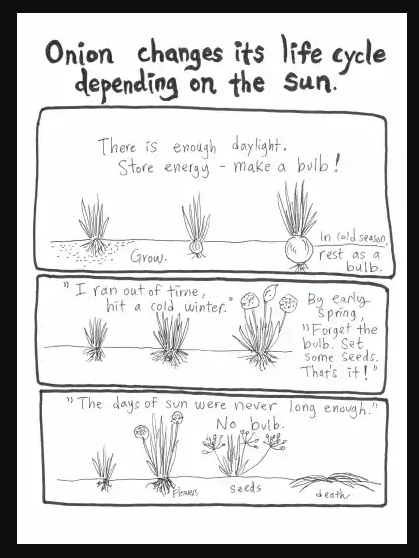 Onion changes its life cycle
depending on the sun.
There is enough daylight.
Store energy - make a bulb!
Grow.
In cold season,
rest as a
bulb.
"I ran out of time,
hit a cold winter."
By early
spring,
"Forget the
bulb. Set
some seeds.
That's it!"
"The days of sun were never long enough."
No bulb.
Flowers
seeds
death